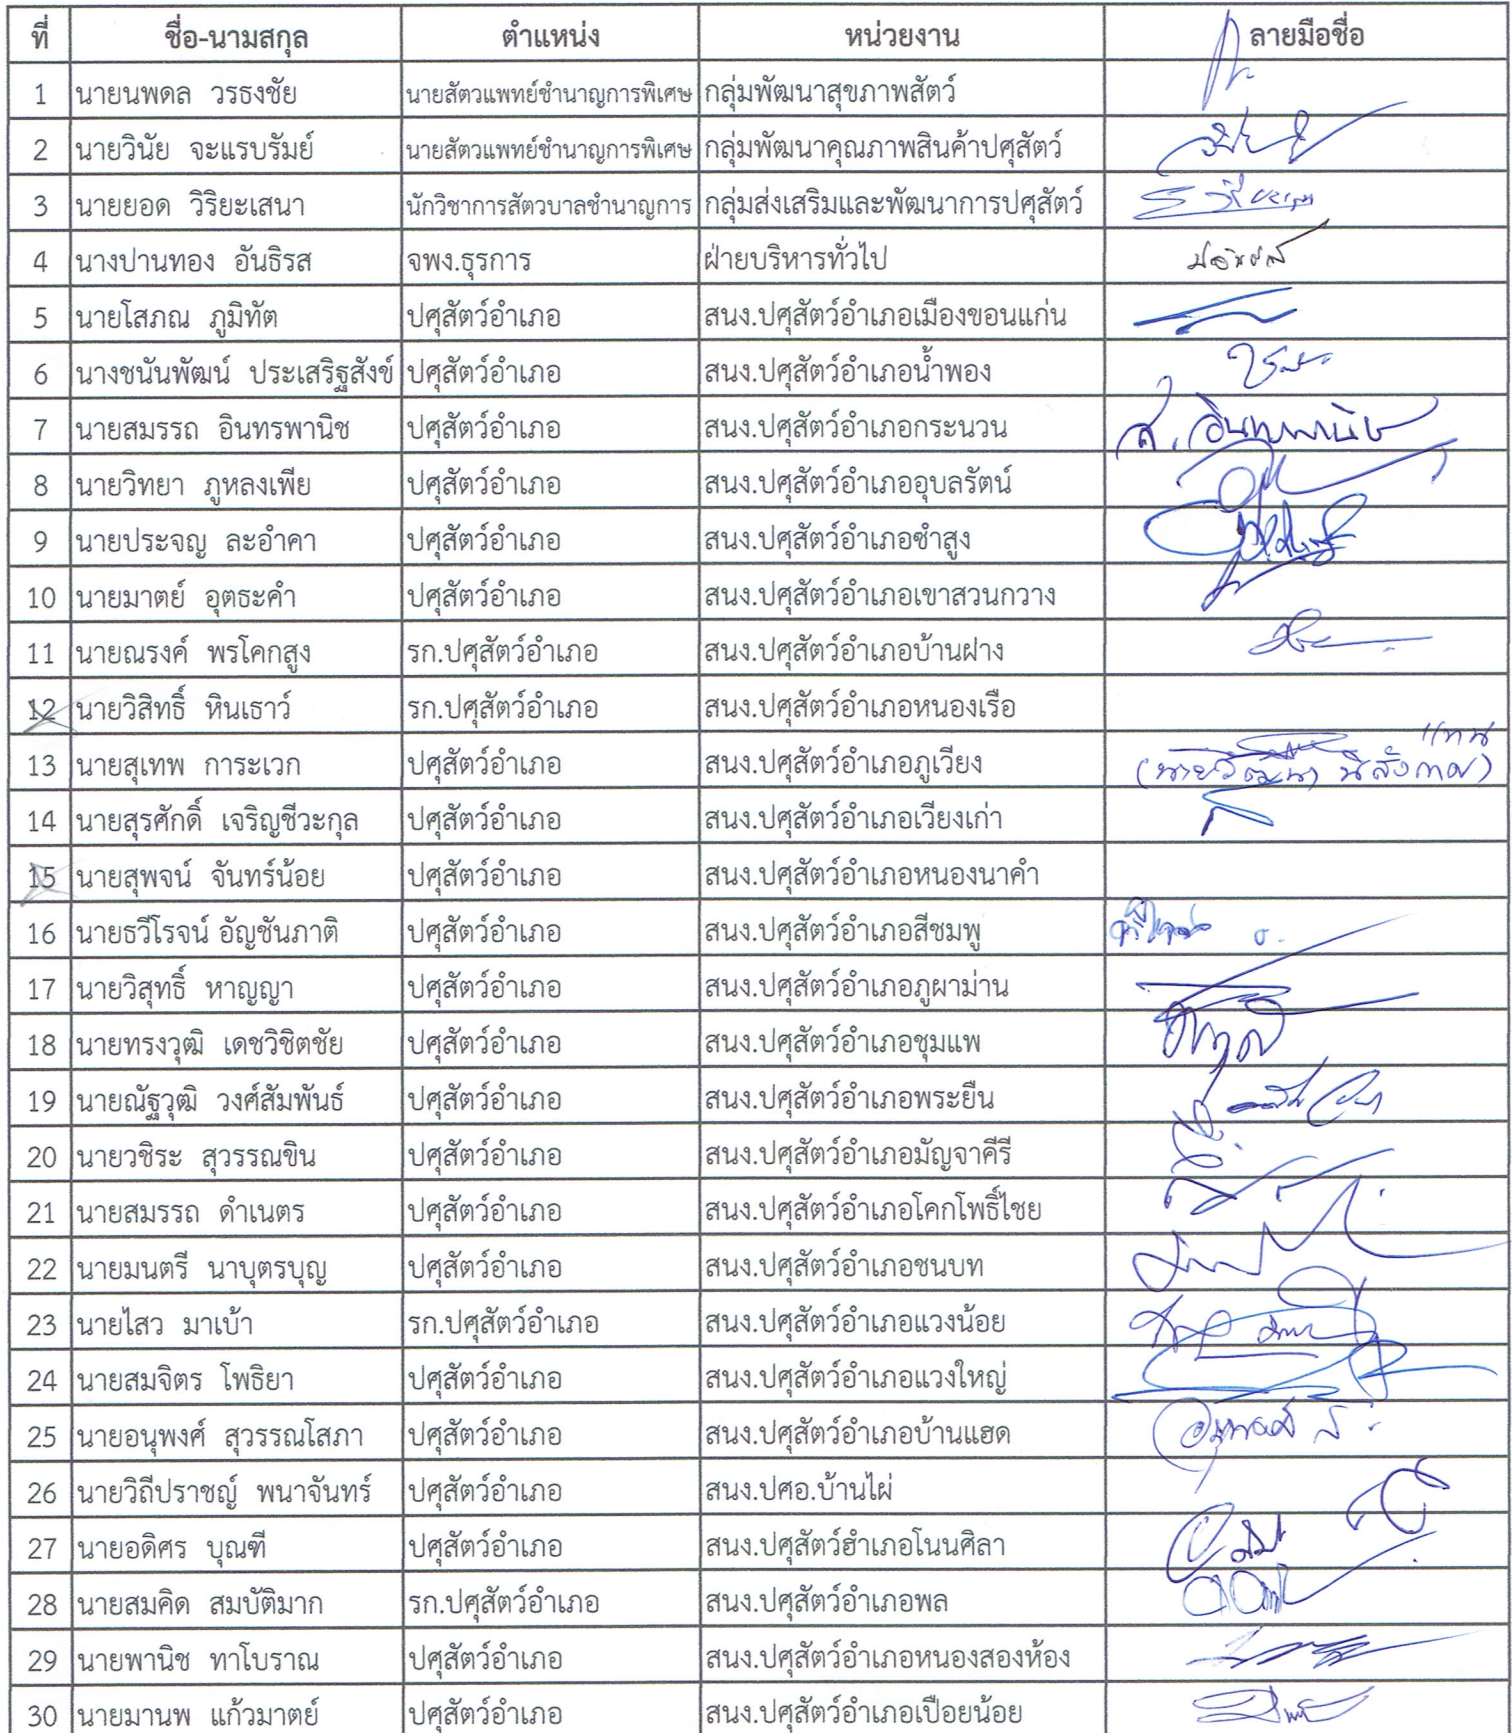 ที่ ชื่อ-นามสกุล ตำแหน่ง หน่วยงาน ลายมือชื่อ
1 นายนพดล วรธงชัย นายสัตวแพทย์ชำนาญการพิเศษ กลุ่มพัฒนาสุขภาพสัตว์
2 นายวินัย จะแรบรัมย์ นายสัตวแพทย์ชำนาญการพิเศษ กลุ่มพัฒนาคุณภาพสินค้าปศุสัตว์
3 นายยอด วิริยะเสนา นักวิชาการสัตวบาลชำนาญการ กลุ่มส่งเสริมและพัฒนาการปศุสัตว์
4 นางปานทอง อันธิรส จพง.ธุรการ ฝ่ายบริหารทั่วไป
5 นายโสภณ ภูมิทัต ปศุสัตว์อำเภอ สนง.ปศุสัตว์อำเภอเมืองขอนแก่น
6 นางชนันพัฒน์ ประเสริฐสังข์ ปศุสัตว์อำเภอ สนง.ปศุสัตว์อำเภอน้ำพอง
7 นายสมรรถ อินทรพานิช ปศุสัตว์อำเภอ สนง.ปศุสัตว์อำเภอกระนวน ส. อินทรพานิช
8 นายวิทยา ภูหลงเพีย ปศุสัตว์อำเภอ สนง.ปศุสัตว์อำเภออุบลรัตน์
9 นายประจญ ละอำคา ปศุสัตว์อำเภอ สนง.ปศุสัตว์อำเภอซำสูง
10 นายมาตย์ อุตธะคำ ปศุสัตว์อำเภอ สนง.ปศุสัตว์อำเภอเขาสวนกวาง
11 นายณรงค์ พรโคกสูง รก.ปศุสัตว์อำเภอ สนง.ปศุสัตว์อำเภอบ้านฝาง
12 นายวิสิทธิ์ หินเธาว์ รก.ปศุสัตว์อำเภอ สนง.ปศุสัตว์อำเภอหนองเรือ
13 นายสุเทพ การะเวก ปศุสัตว์อำเภอ สนง.ปศุสัตว์อำเภอภูเวียง แทน
14 นายสุรศักดิ์ เจริญชีวะกุล ปศุสัตว์อำเภอ สนง.ปศุสัตว์อำเภอเวียงเก่า
15 นายสุพจน์ จันทร์น้อย ปศุสัตว์อำเภอ สนง.ปศุสัตว์อำเภอหนองนาคำ
16 นายธวีโรจน์ อัญชันภาติ ปศุสัตว์อำเภอ สนง.ปศุสัตว์อำเภอสีชมพู
17 นายวิสุทธิ์ หาญญา ปศุสัตว์อำเภอ สนง.ปศุสัตว์อำเภอภูผาม่าน
18 นายทรงวุฒิ เดชวิชิตชัย ปศุสัตว์อำเภอ สนง.ปศุสัตว์อำเภอชุมแพ
19 นายณัฐวุฒิ วงศ์สัมพันธ์ ปศุสัตว์อำเภอ สนง.ปศุสัตว์อำเภอพระยืน
20 นายวชิระ สุวรรณขิน ปศุสัตว์อำเภอ สนง.ปศุสัตว์อำเภอมัญจาคีรี
21 นายสมรรถ ดำเนตร ปศุสัตว์อำเภอ สนง.ปศุสัตว์อำเภอโคกโพธิ์ไชย
22 นายมนตรี นาบุตรบุญ ปศุสัตว์อำเภอ สนง.ปศุสัตว์อำเภอชนบท
23 นายไสว มาเบ้า รก.ปศุสัตว์อำเภอ สนง.ปศุสัตว์อำเภอแวงน้อย
24 นายสมจิตร โพธิยา ปศุสัตว์อำเภอ สนง.ปศุสัตว์อำเภอแวงใหญ่
25 นายอนุพงศ์ สุวรรณโสภา ปศุสัตว์อำเภอ สนง.ปศุสัตว์อำเภอบ้านแฮด
26 นายวิถีปราชญ์ พนาจันทร์ ปศุสัตว์อำเภอ สนง.ปศอ.บ้านไผ่
27 นายอดิศร บุณฑี ปศุสัตว์อำเภอ สนง.ปศุสัตว์ฮำเภอโนนศิลา
28 นายสมคิด สมบัติมาก รก.ปศุสัตว์อำเภอ สนง.ปศุสัตว์อำเภอพล
29 นายพานิช ทาโบราณ ปศุสัตว์อำเภอ สนง.ปศุสัตว์อำเภอหนองสองห้อง
30 นายมานพ แก้วมาตย์ ปศุสัตว์อำเภอ สนง.ปศุสัตว์อำเภอเปือยน้อย